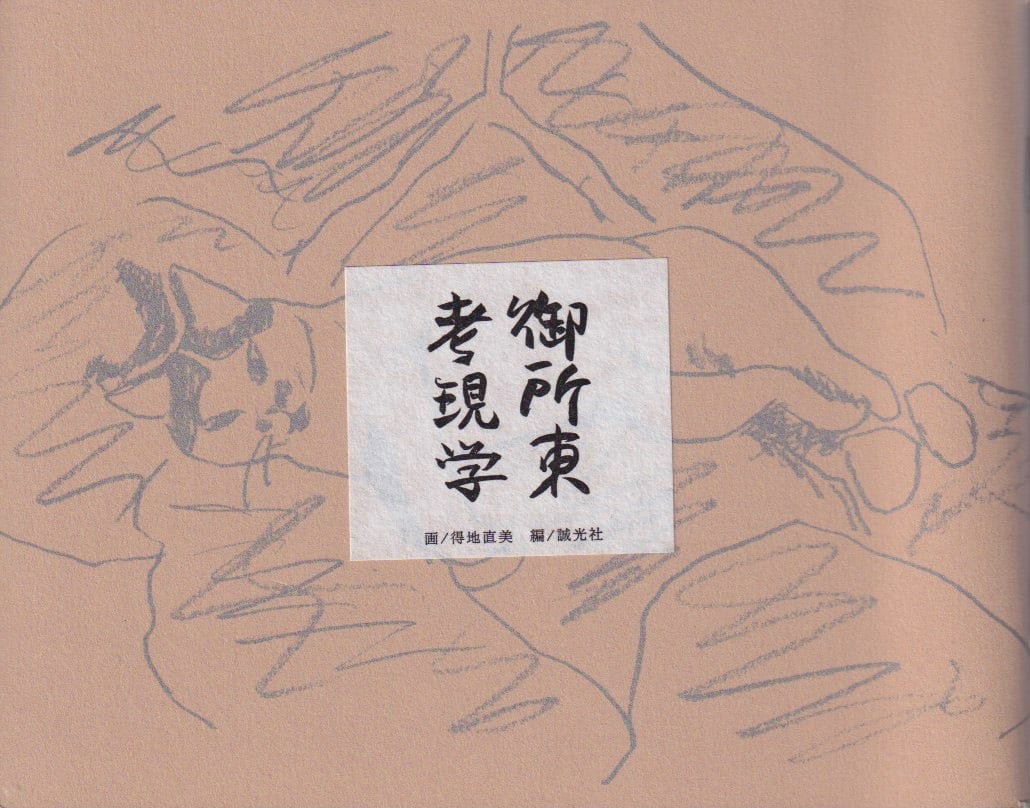 御所東
考現学
画/得地直美　編/誠光社